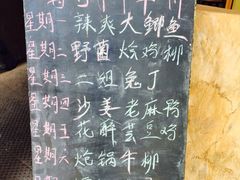 星期一 辣爽大鲫鱼
星期二 野菌烩鸡柳
星期三 二姐兔丁
星期四 沙姜老麻鸭
星期五 花醉芸豆鸡
星期六 炝锅牛柳
星期